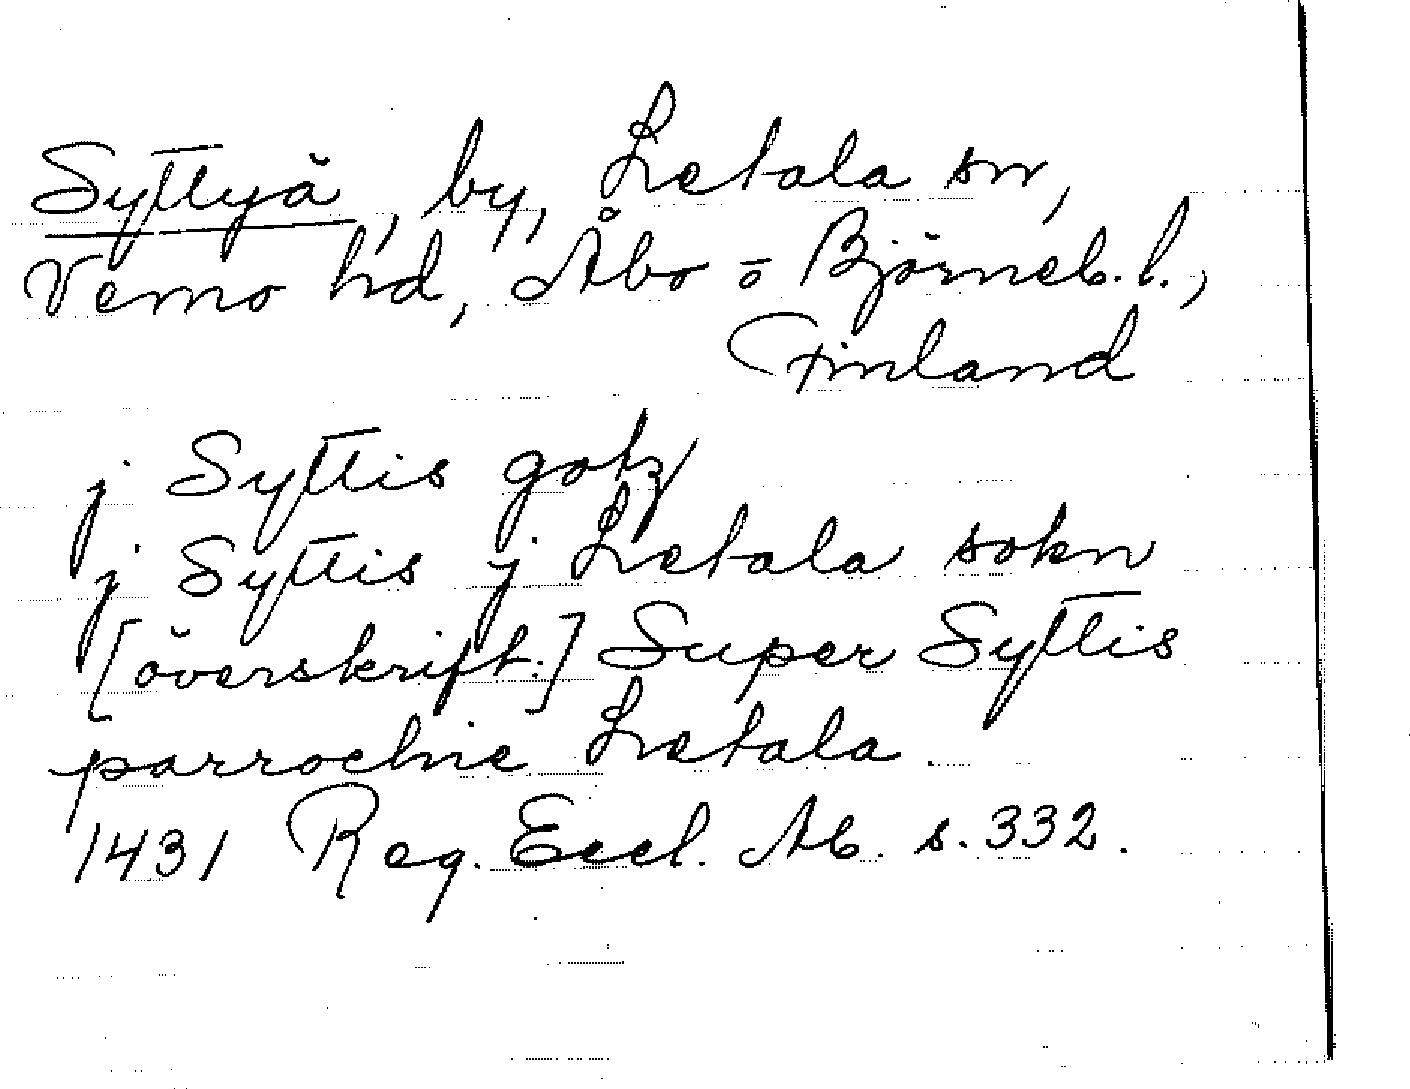 Syttyä, by, Letala sn,
Vemo hd, Åbo o Björneb. l.,
Finland
j Syttis gotz
j Syttis j Letala sokn
[överskrift:] Super Syttis
parrochie Letala.
1431 Reg. Eccl. Ab. s. 332.